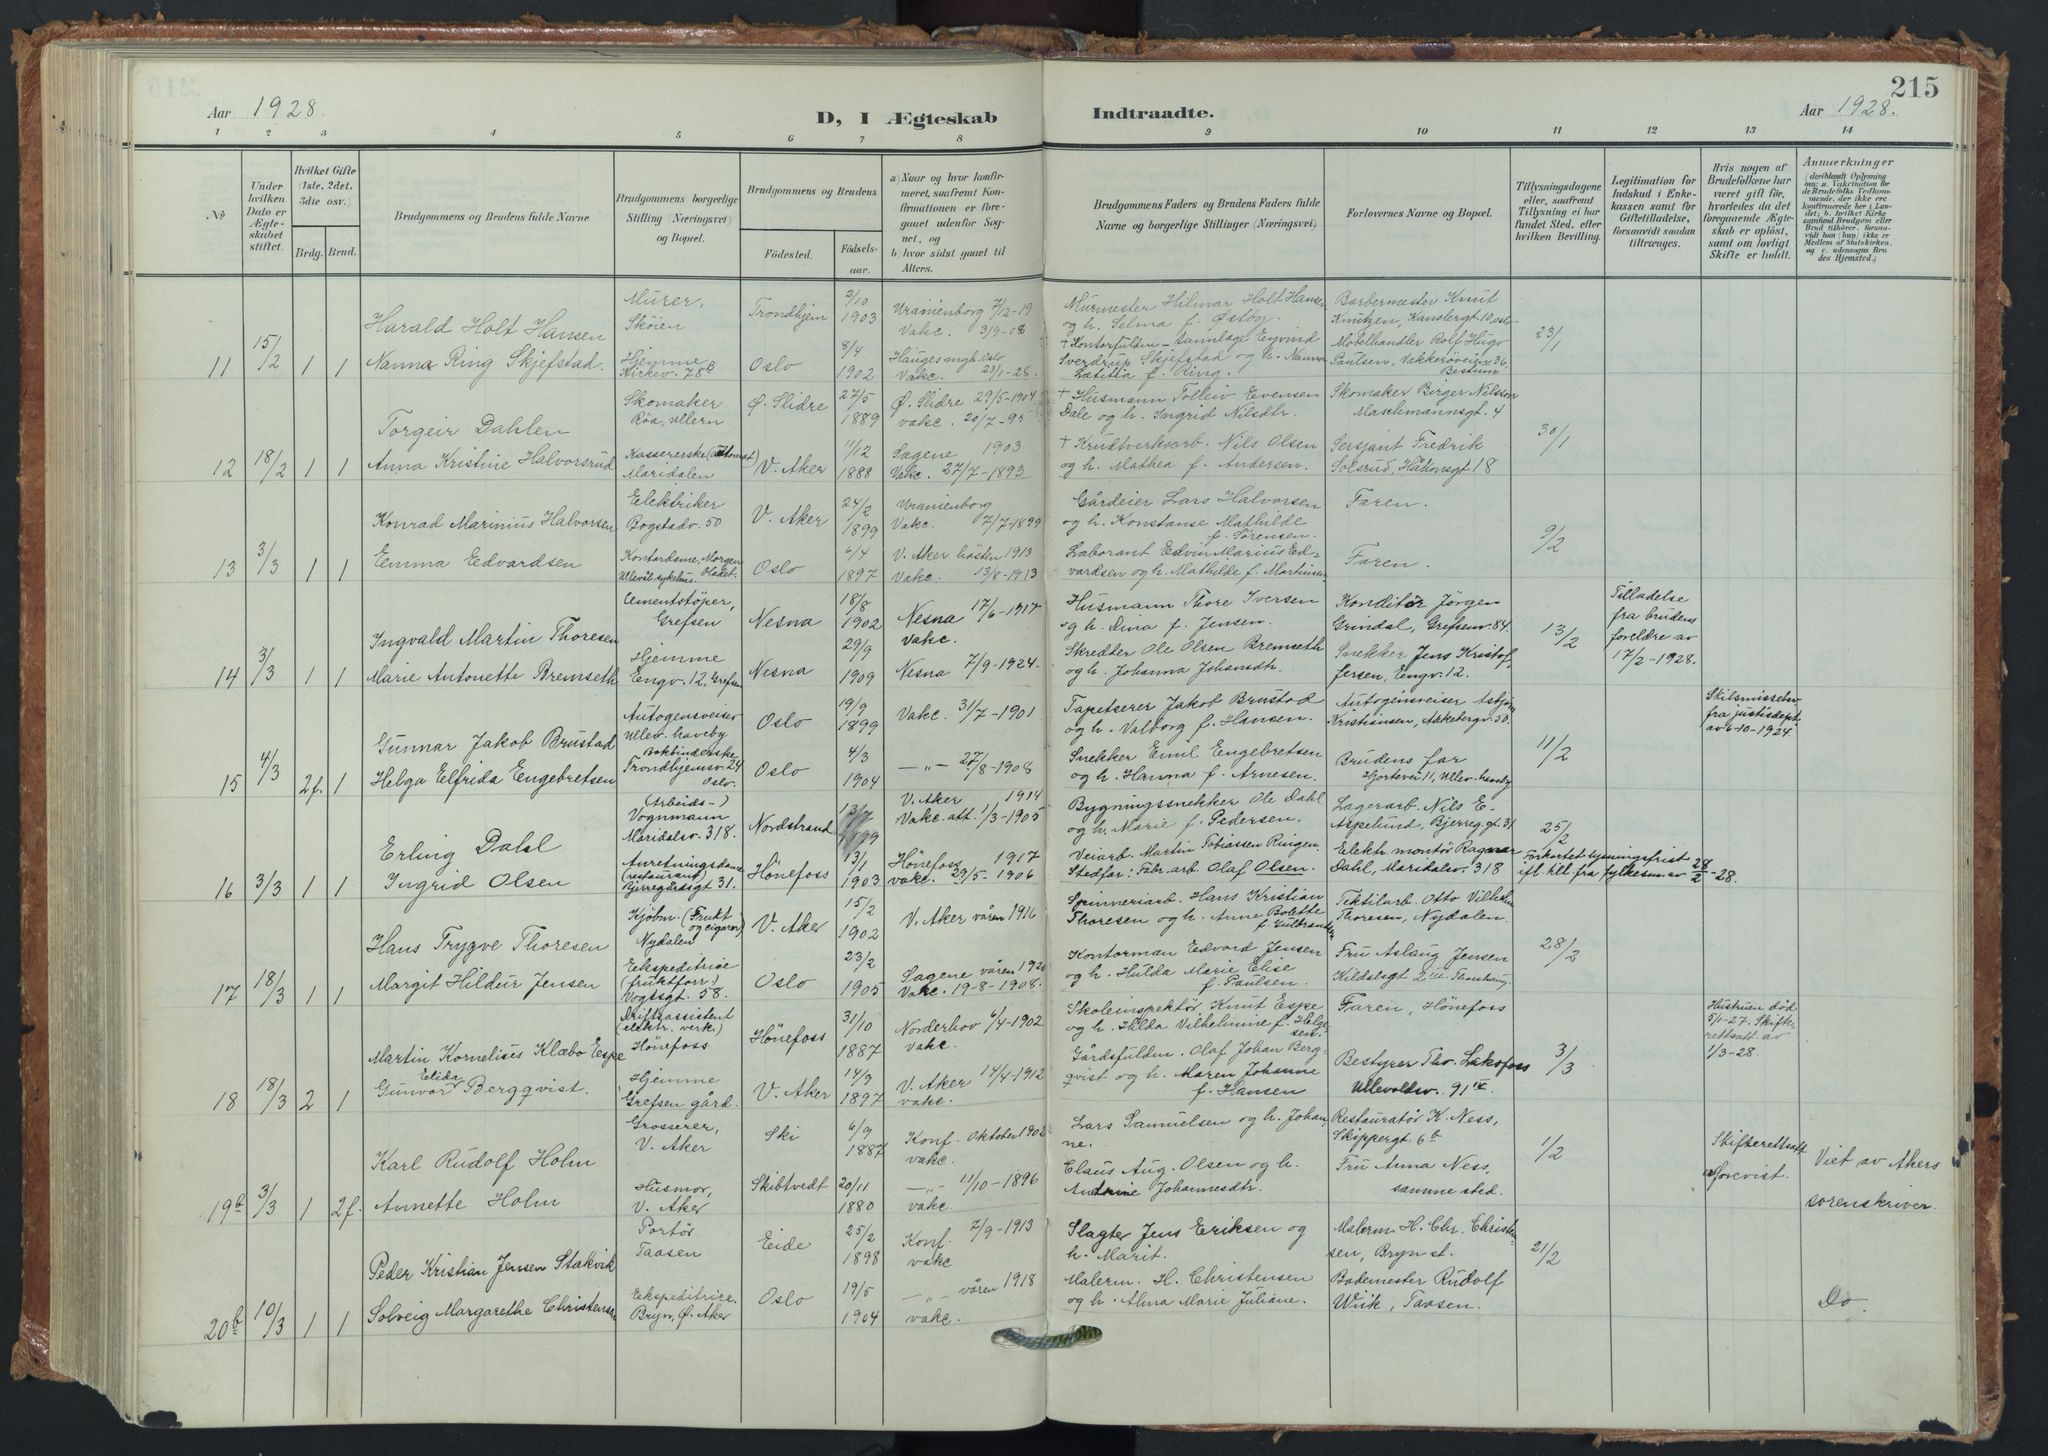 215
Aar 1928.
D, I Ægteskab
Indtraadte.
Aar 1928.
1 2 3 4 5 6 7 8 9 10 11 12 13 14
No
Under hvilken Dato er Ægteskabet stiftet.
Hvilket Gifte (1ste, 2det, 3die osv.)
Brdg. Brud.
Brudgommens og Brudens fulde Navne
Brudgommens borgerlige Stilling (Næringsvei) og Bopæl.
Brudgommens og Brudens
Fødested.
Fødselsaar.
a) Naar og hvor konfirmeret, saafremt Konfirmationen er foregaaet udenfor Sognet, og
b) hvor sidst gaaet til Alters.
Brudgommens Faders og Brudens Faders fulde Navne og borgerlige Stillinger (Næringsvei)
Forlovernes Navne og Bopæl.
Tillysningsdagene eller, saafremt Tillysning ei har fundet Sted, efter hvilken Bevilling.
Legitimation for Indskud i Enkekassen samt for Giftetilladelse, forsaavidt saadan tiltrænges.
Hvis nogen af Brudefolkene har været gift før, hvorledes da det foregaaende Ægteskab er opløst, samt om lovligt Skifte er holdt.
Anmærkninger
(deriblandt Oplysning om: a. Vakcination for de Brudefolks Vedkommende, der ikke ere konfirmerede her i Landet; b. hvilket Kirkesamfund Brudgom eller Brud tilhører, forsaavidt han (hun) ikke er Medlem af Statskirken og c. udensogns Brudes Hjemsted.)
11 15/2 1 1
Harald Holt Hansen
Murer, Skøien
Trondhjem 2/10 1903
Uranienborg 7/12-19
Vakc. 3/9-08
Murmester Hilmar Holt Hansen og h. Selma f. Østby.
Barbermester Knut Knutzen, Kansbergt. 10, Oslo
23/1
Nanna Ring Skjefstad.
Hjemme Kirkev. 78b
Oslo 8/4 1902
Hauges mgh. Oslo
Vakc. 23/1-28.
Sverdrup Skjefstad og h. Nanna Lætitia f. Ring.
Møbelhandler Rolf Hugo Paulsen, Vækkerøveien 36, Bestum
12 18/2 1 1
Torgeir Dahlen
Skomaker Røa, Ullern
Ø. Slidre 27/5 1889
Ø. Slidre 29/5-1904
Vakc. 20/7-95
+ Husmann Tolleiv Evensen Dale og h. Ingrid Nilsdtr.
Skomaker Birger Nilsson Maschmannsgt. 4
30/1
Anna Kristine Halvorsrud
Kassererske (Automat) Maridalen
V. Aker 11/2 1888
Sagene 1903
Vakc. 27/7-1893
+ Krudtverkarb. Nils Olsen og h. Mathea f. Andersen.
Sersjant Fredrik Solsrud, Håkonsgt 18
13 3/3 1 1
Konrad Marinius Halvorsen
Elektriker Bogstadv. 50
V. Aker 24/2 1899
Uranienborg
Vakc. 7/7-1899
Gårdeier Lars Halvorsen og h. Konstanse Mathilde f. Sørensen.
Faren.
9/2
Emma Edvardsen
Kontordame, Morgenbladet. Ullevål sykehus.
Oslo 6/4 1897
V. Aker høsten 1913
Vakc. 13/8-1913
Laborant Edvin Marius Edvardsen og h. Mathilde f. Martinsen
Faren.
14 3/3 1 1
Ingvald Martin Thoresen
Cementstøper, Grefsen
Nesna 18/8 1902
Nesna 17/6-1917
Vakc.
Husmann Thore Iversen og h. Dina f. Jensen.
Konditor Jørgen Grindal, Grefsenv. 84.
13/2
Tilladelse fra brudens foreldre av 17/2-1928.
Marie Antonette Bremseth
Hjemme Engv. 12, Grefsen
Nesna 29/9 1909
Nesna 7/9-1924.
Skrædder Ole Olsen Bremseth og h. Johanna Johansdtr.
Snekker Jens Kristoffersen, Engv. 12.
15 4/3 2f. 1
Gunnar Jakob Brustad
Autogensveiser Ullev. haveby
Oslo 19/9 1899
Vakc. 31/7-1901
Tapetserer Jakob Brustad og h. Valborg f. Hansen.
Autogensveiser Asbjørn Kristiansen, Akebergv. 50.
11/2
Skilsmissebev. fra justisdept. av 6-10-1924.
Helga Elfrida Engebretsen
Bokbinderske Trondhjemsv. 24 Oslo.
Oslo 4/3 1904
-"- 27/8-1908
Snekker Emil Engebretsen og h. Hanna f. Arnesen.
Brudens far Hjortevei 11, Ullev. haveby
16 3/3 1 1
Erling Dahl
(Arbeids-) Vognmann Maridalsv. 318.
Nordstrand 13/7 1899
V. Aker 1914
Vakc. att. 1/3-1905
Bygningssnekker Ole Dahl og h. Marie f. Pedersen.
Lagerarb. Nils E. Aspelund, Bjerreg.gt. 31
25/2
Ingrid Olsen
Anretningsdame (restaurant) Bjerregårdsgt 31.
Hønefoss 13/1 1903
Hønefoss 1917
vakc. 29/5-1906
Veiarb. Martin Tobiassen Ringen.
Stedfar: Fabr. arb. Olaf Olsen.
Elektr. montør Ragnar Dahl, Maridalsv. 318
Forkortet lysningsfrist ifl. till. fra fylkesm. av 28/2-28.
17 18/3 1 1
Hans Trygve Thoresen
Kjøbm. (Frukt og cigarer) Nydalen
V. Aker 15/2 1902
V. Aker våren 1916
Spinneriarb. Hans Kristian Thoresen og h. Anne Bolette f. Gulbrandsen
Tekstilarb. Otto Vilhelm Thoresen, Nydalen.
28/2
Margit Hildur Jensen
Ekspeditrice (fruktforr.) Vogtsgt. 58.
Oslo 23/2 1905
Sagene våren 1920
Vakc. 19-8-1908.
Kontorman Edvard Jensen og h. Hulda Marie Elise f. Paulsen.
Fru Aslaug Jensen
18 18/3 2 1
Martin Kornelius Klæbo Espe
Driftsassistent (elektr. verk.) Hønefoss
Hønefoss 31/10 1887
Norderhov 6/4-1902
vakc.
Skoleinspektør Knut Espe og h. Hilda Vilhelmine f. Helgesen.
Faren, Hønefoss
3/3
Hustruen død 5/1-27. Skifterettsatt. av 1/3-28.
Gunvor Elida Bergqvist.
Hjemme Grefsen gård.
V. Aker 14/3 1897
V. Aker 14/4-1912
vakc.
Gårdsfulden. Olaf Johan Bergqvist og h. Maren Johanne f. Hansen
Bestyrer Thv. Laksfoss Ullevoldsv. 91 IV
19b 3/3 1 2f.
Karl Rudolf Holm
Grosserer, V. Aker
Ski 6/9 1887
Konf. Oktober 1902
vakc.
Lars Samuelsen og h. Johanne.
Restauratør K. Ness, Skippergt. 6b
1/2
Skifterettsatt. forevist.
Viet av Akers sorenskriver.
Annette Holm
Husmor, V. Aker
Skibtvedt 20/11 1880
-"- 11/10-1896
vakc.
Claus Aug. Olsen og h. Andrine Johannesdtr.
Fru Anna Ness, samme sted.
20b 10/3 1 1
Peder Kristian Jensen Stakvik
Portør Taasen
Eide 25/2 1898
Konf. 7/9-1913
vakc
Slagter Jens Eriksen og h. Marit.
Malerm. H. Chr. Christensen, Bryn st.
21/2
Do.
Solveig Margarethe Christensen
Ekspeditrice. Bryn, Ø. Aker
Oslo 19/5 1904
-"- våren 1918
vakc.
Malerm. H. Christensen og h. Alma Marie Juliane.
Bademester Rudolf Wiik, Taasen.